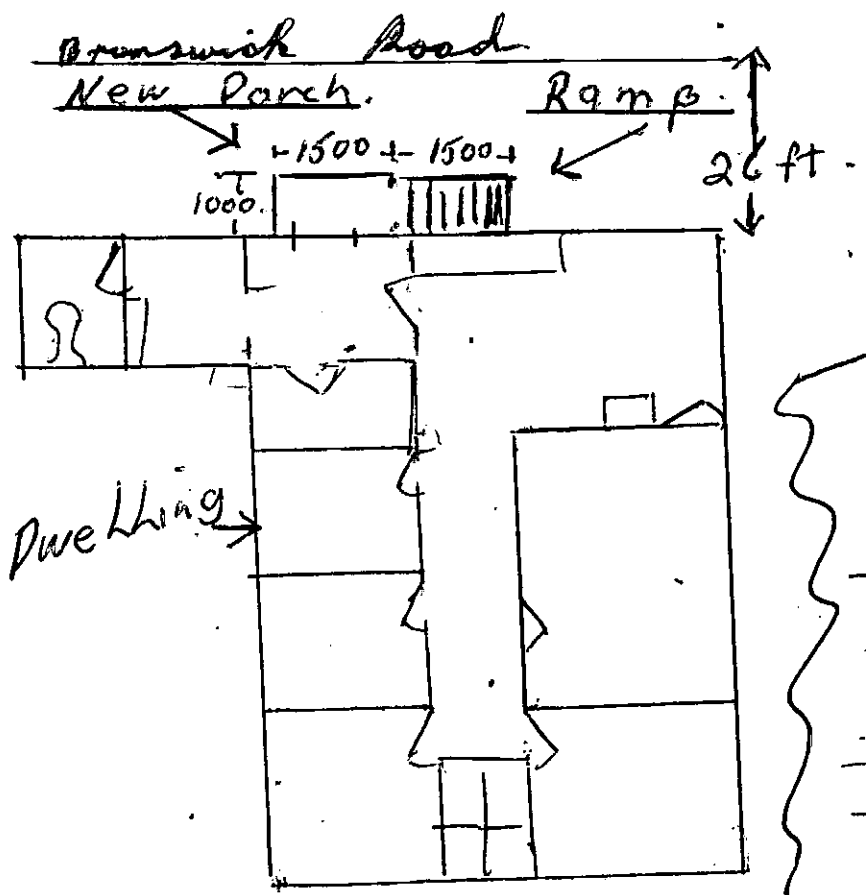 Brunswick Road
New Porch.
Ramp.
1500
1500
1000.
ft.
Dwelling